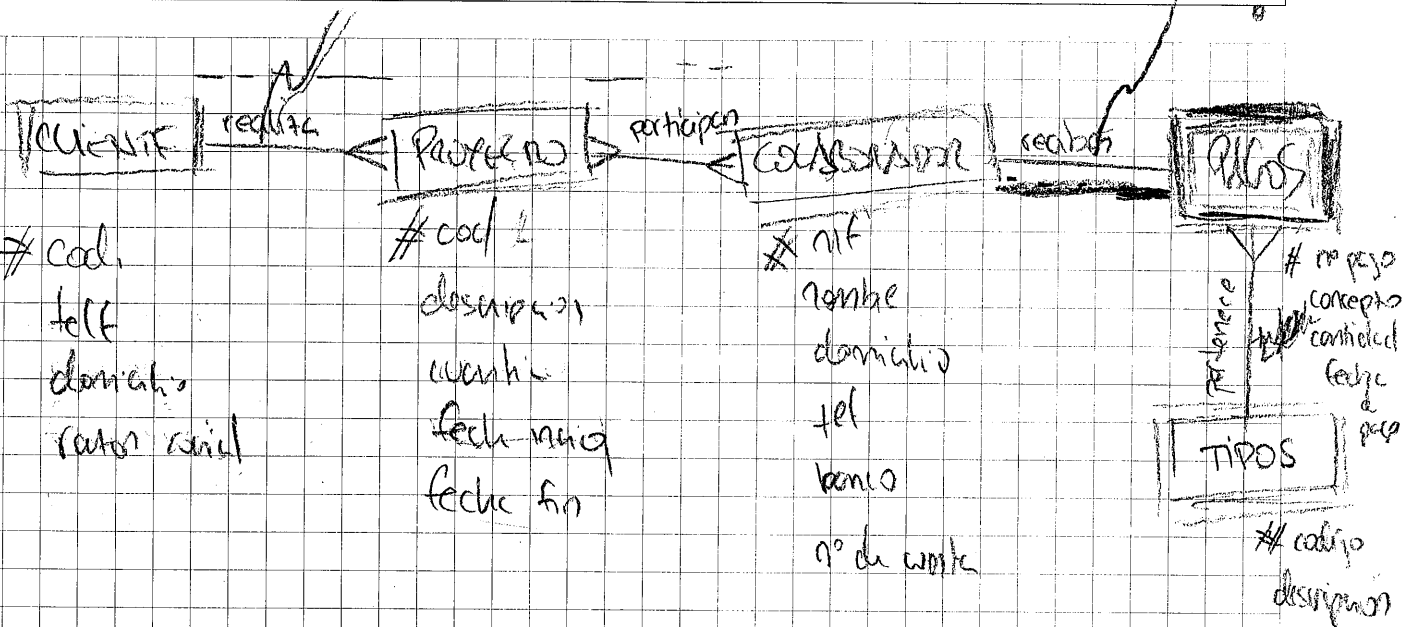 CLIENTE
realiza
PROYECTO
participan
COLABORADOR
reciben
PAGOS
# cod.
telf
domicilio
razon social
# cod
descripcion
cuantia
fecha inicio
fecha fin
# nif
nombre
domicilio
tel
banco
nº de cuenta
# nº pago
concepto
cantidad
fecha
d
pago
pertenece
TIPOS
# codigo
descripcion